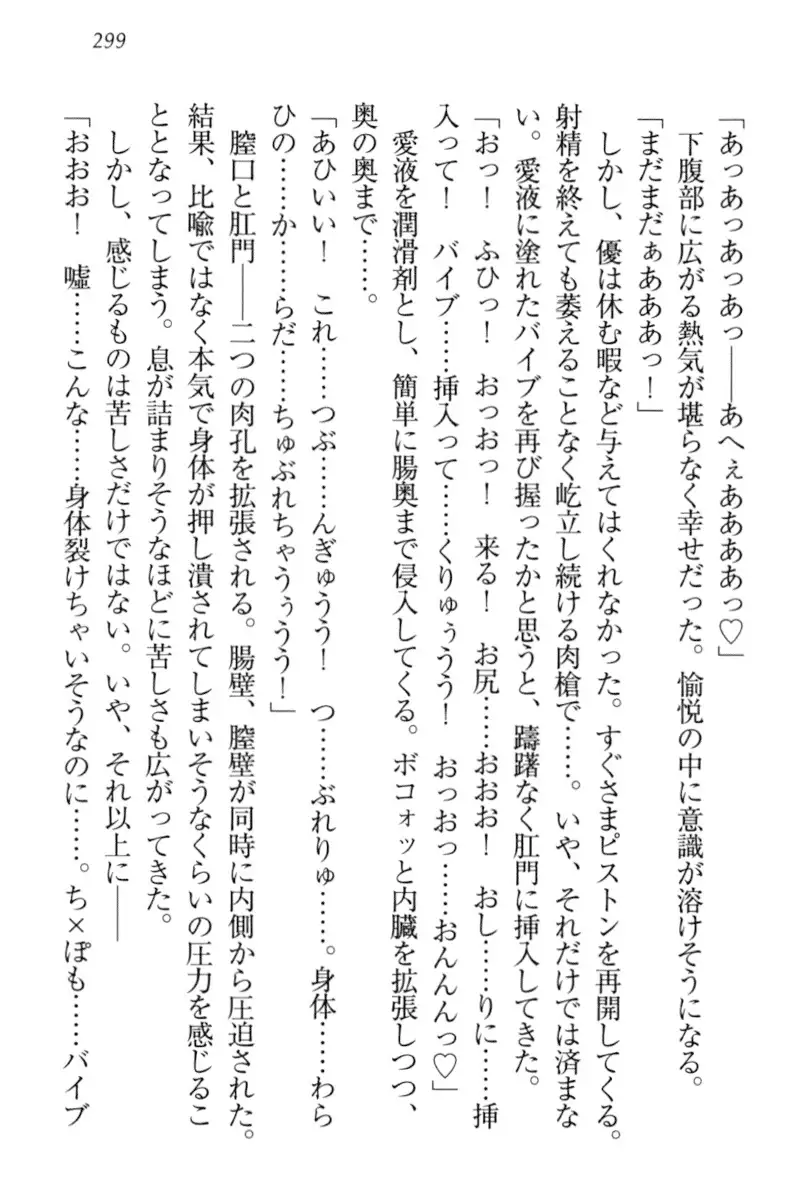 299
「あっあっあっあっ――あへぇああああっ♡」
下腹部に広がる熱気が堪らなく幸せだった。愉悦の中に意識が溶けそうになる。
「まだまだぁあああっ！」
しかし、優は休む暇など与えてはくれなかった。すぐさまピストンを再開してくる。
射精を終えても萎えることなく屹立し続ける肉槍で……。いや、それだけでは済まな
い。愛液に塗れたバイブを再び握ったかと思うと、躊躇なく肛門に挿入してきた。
「おっ！　ふひっ！　おっおっ！　来る！　お尻……おおお！　おし……りに……挿
入って！　バイブ……挿入って……くりゅぅうう！　おっおっ……おんんんっ♡」
愛液を潤滑剤とし、簡単に腸奥まで侵入してくる。ボコォッと内臓を拡張しつつ、
奥の奥まで……。
「あひいい！　これ……つぶ……んぎゅうう！　つ……ぶれりゅ……。身体……わら
ひの……か……らだ……ちゅぶれちゃうぅうう！」
膣口と肛門――二つの肉孔を拡張される。腸壁、膣壁が同時に内側から圧迫された。
結果、比喩ではなく本気で身体が押し潰されてしまいそうなくらいの圧力を感じるこ
ととなってしまう。息が詰まりそうなほどに苦しさも広がってきた。
しかし、感じるものは苦しさだけではない。いや、それ以上に――
「おおお！　嘘……こんな……身体裂けちゃいそうなのに……。ち×ぽも……バイブ